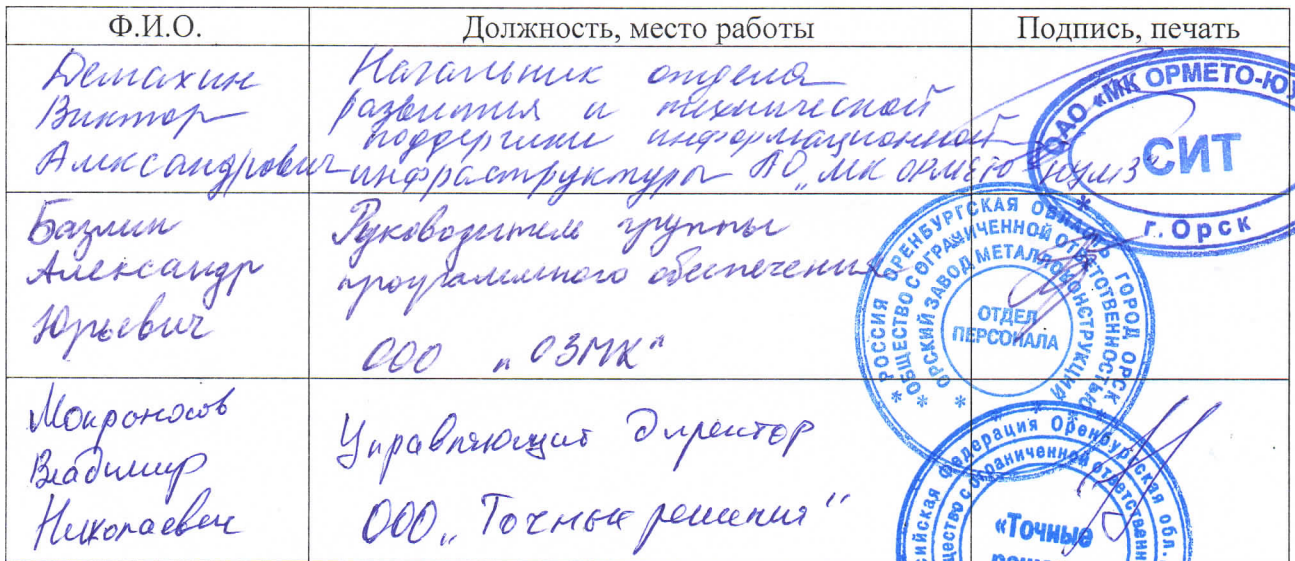 Ф.И.О.
Должность, место работы
Подпись, печать
Демахин
Виктор
Александрович
Начальник отдела
развития и технической
поддержки информационной
инфраструктуры АО „МК ОРМЕТО-ЮУМЗ"
ОАО «МК ОРМЕТО-ЮУ
СИТ
г. Орск
Базлин
Александр
Юрьевич
Руководитель группы
программного обеспечения
ООО „ОЗМК"
РОССИЯ ОРЕНБУРГСКАЯ ОБЛАСТЬ ГОРОД ОРСК
ОБЩЕСТВО С ОГРАНИЧЕННОЙ ОТВЕТСТВЕННОСТЬЮ
ОРСКИЙ ЗАВОД МЕТАЛЛОКОНСТРУКЦИЙ
ОТДЕЛ
ПЕРСОНАЛА
Мокроносов
Владимир
Николаевич
Управляющий Директор
ООО „Точные решения"
сийская Федерация Оренбургская обл.
щество с ограниченной ответственн
«Точные